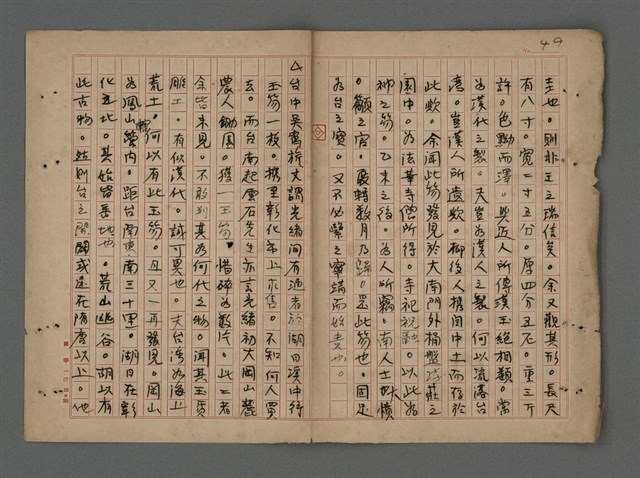 49
圭也。則非王之瑞信矣。余又觀其形。長尺
有八寸。寬二寸五分。厚四分五厘。重三斤
許。色黝而澤。與近人所傳漢玉絕相類。當
為漢代之製。夫豈為漢人之製。何以流落台
灣。豈漢人所遺歟。抑後人攜自中土而存於
此歟。余聞此笏發見於大南門外桶盤淺莊之
園中。為法華寺僧所得。寺祀祝融。以此為
神之笏。乙未之後。為人所竊。南人士大憤
。籲之官。展轉數月乃歸。是此笏也。固足
為台之寶。又不必繫之寧靖而始貴也。
△台中吳鸞旂丈謂光緒間有漁者於湖日溪中得
玉笏一枝。攜至彰化市上求售。不知何人買
去。而台南趙雲石先生亦言光緒初大岡山麓
農人鋤園。獲一玉笏。惜碎為數片。此二者
余皆未見。不敢斷其為何代之物。聞其玉質
雕工。有似漢代。誠可異也。夫台灣為海上
荒土。何以有此玉笏。且又一再發見。岡山
為鳳山轄內。距台南東南三十里。湖日在彰
化之北。其始皆番地也。荒山幽谷。胡以有
此古物。然則台之開闢或遠在隋唐以上。他